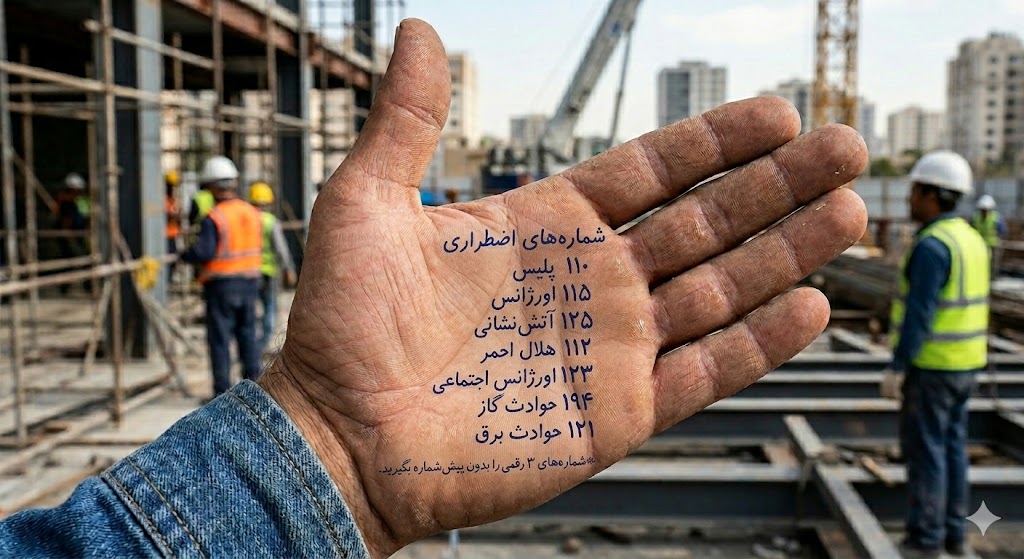 شماره‌های اضطراری
۱۱۰ پلیس
۱۱۵ اورژانس
۱۲۵ آتش‌نشانی
۱۱۲ هلال احمر
۱۲۳ اورژانس اجتماعی
۱۹۴ حوادث گاز
۱۲۱ حوادث برق
*شماره‌های ۳ رقمی را بدون پیش‌شماره بگیرید.